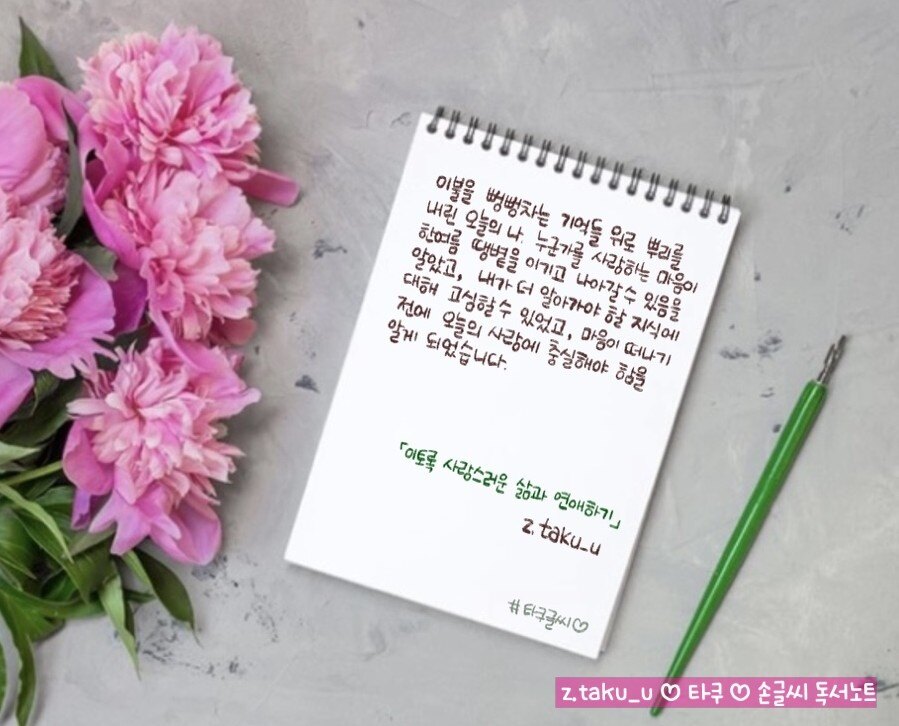 이불을 뻥뻥차는 기억들 위로 뿌리를
내린 오늘의 나. 누군가를 사랑하는 마음이
한여름 땡볕을 이기고 나아갈 수 있음을
알았고, 내가 더 알아가야 할 지식에
대해 고심할 수 있었고, 마음이 떠나기
전에 오늘의 사랑에 충실해야 함을
알게 되었습니다.
「이토록 사랑스러운 삶과 연애하기」
z.taku_u
#타쿠글씨♡
z.taku_u ♡ 타쿠 ♡ 손글씨 독서노트